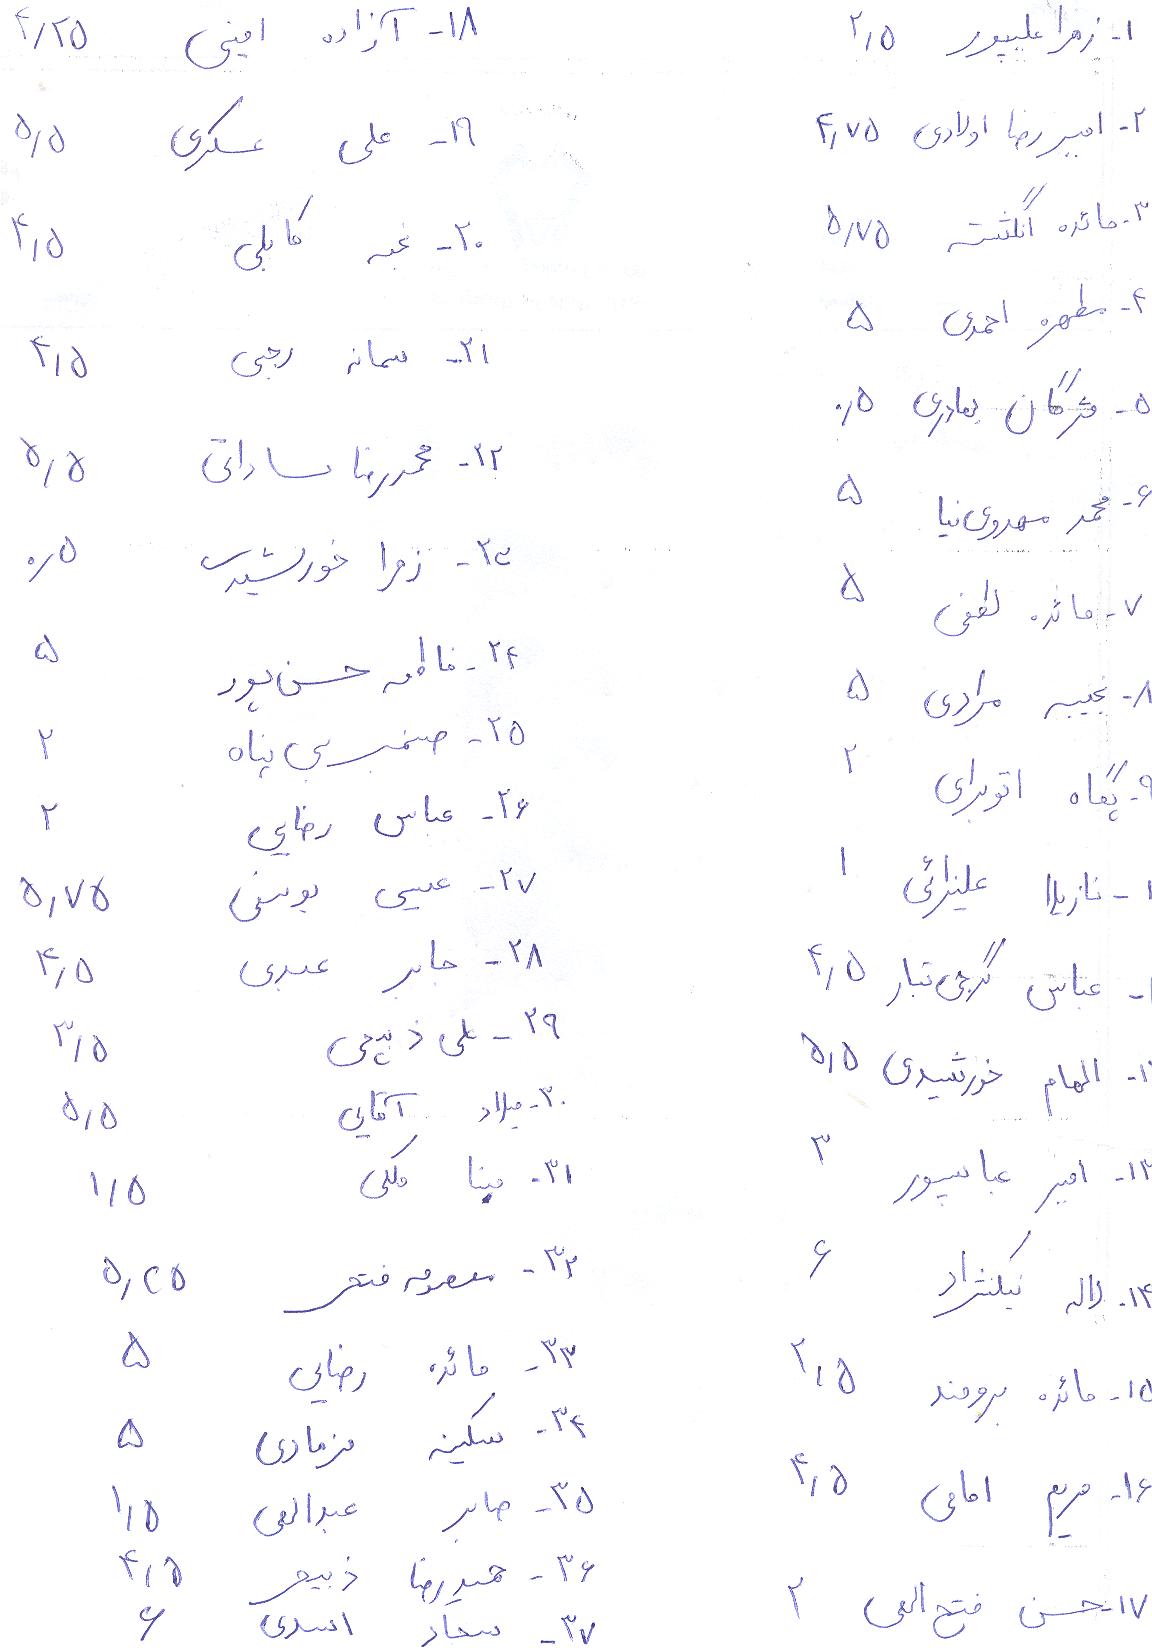 ۱- زهرا علیپور ۲٫۵
۲- امیررضا اولادی ۴٫۷۵
۳- مائده انگشته ۵٫۷۵
۴- مطهره احمدی ۵
۵- مژگان بهادری ۰٫۵
۶- محمد مهدوی نیا ۵
۷- مائده لطفی ۵
۸- نجیبه مرادی ۵
۹- پگاه ۲
نازیلا علیزائی ۱
عباس گرجی تبار ۴٫۵
الهام خورشیدی ۵٫۵
۱۳- امیر عباسپور ۳
۱۴- لاله نیکنژاد ۶
۱۵- مائده برومند ۲٫۵
۱۶- مریم امامی ۴٫۵
۱۷- حسن فتح الهی ۲
۱۸- آزاده امینی ۴٫۲۵
۱۹- علی عسکری ۵٫۵
۲۰- نجمه کابلی ۴٫۵
۲۱- سمانه رجبی ۴٫۵
۲۲- محمدرضا ساداتی ۵٫۵
۲۳- زهرا خورشیدی ۰٫۵
۲۴- فاطمه حسن پور ۵
۲۵- صنمبر بی پناه ۲
۲۶- عباس رضایی ۲
۲۷- عیسی یوسفی ۵٫۷۵
۲۸- جابر عبدی ۴٫۵
۲۹- علی ذبیحی ۳٫۵
۳۰- میلاد آقایی ۵٫۵
۳۱- مینا ملکی ۱٫۵
۳۲- معصومه فتحی ۵٫۲۵
۳۳- مائده رضایی ۵
۳۴- سکینه ۵
۳۵- صابر عبدالهی ۱٫۵
۳۶- حمیدرضا ذبیحی ۴٫۵
۳۷- سجاد اسدی ۶